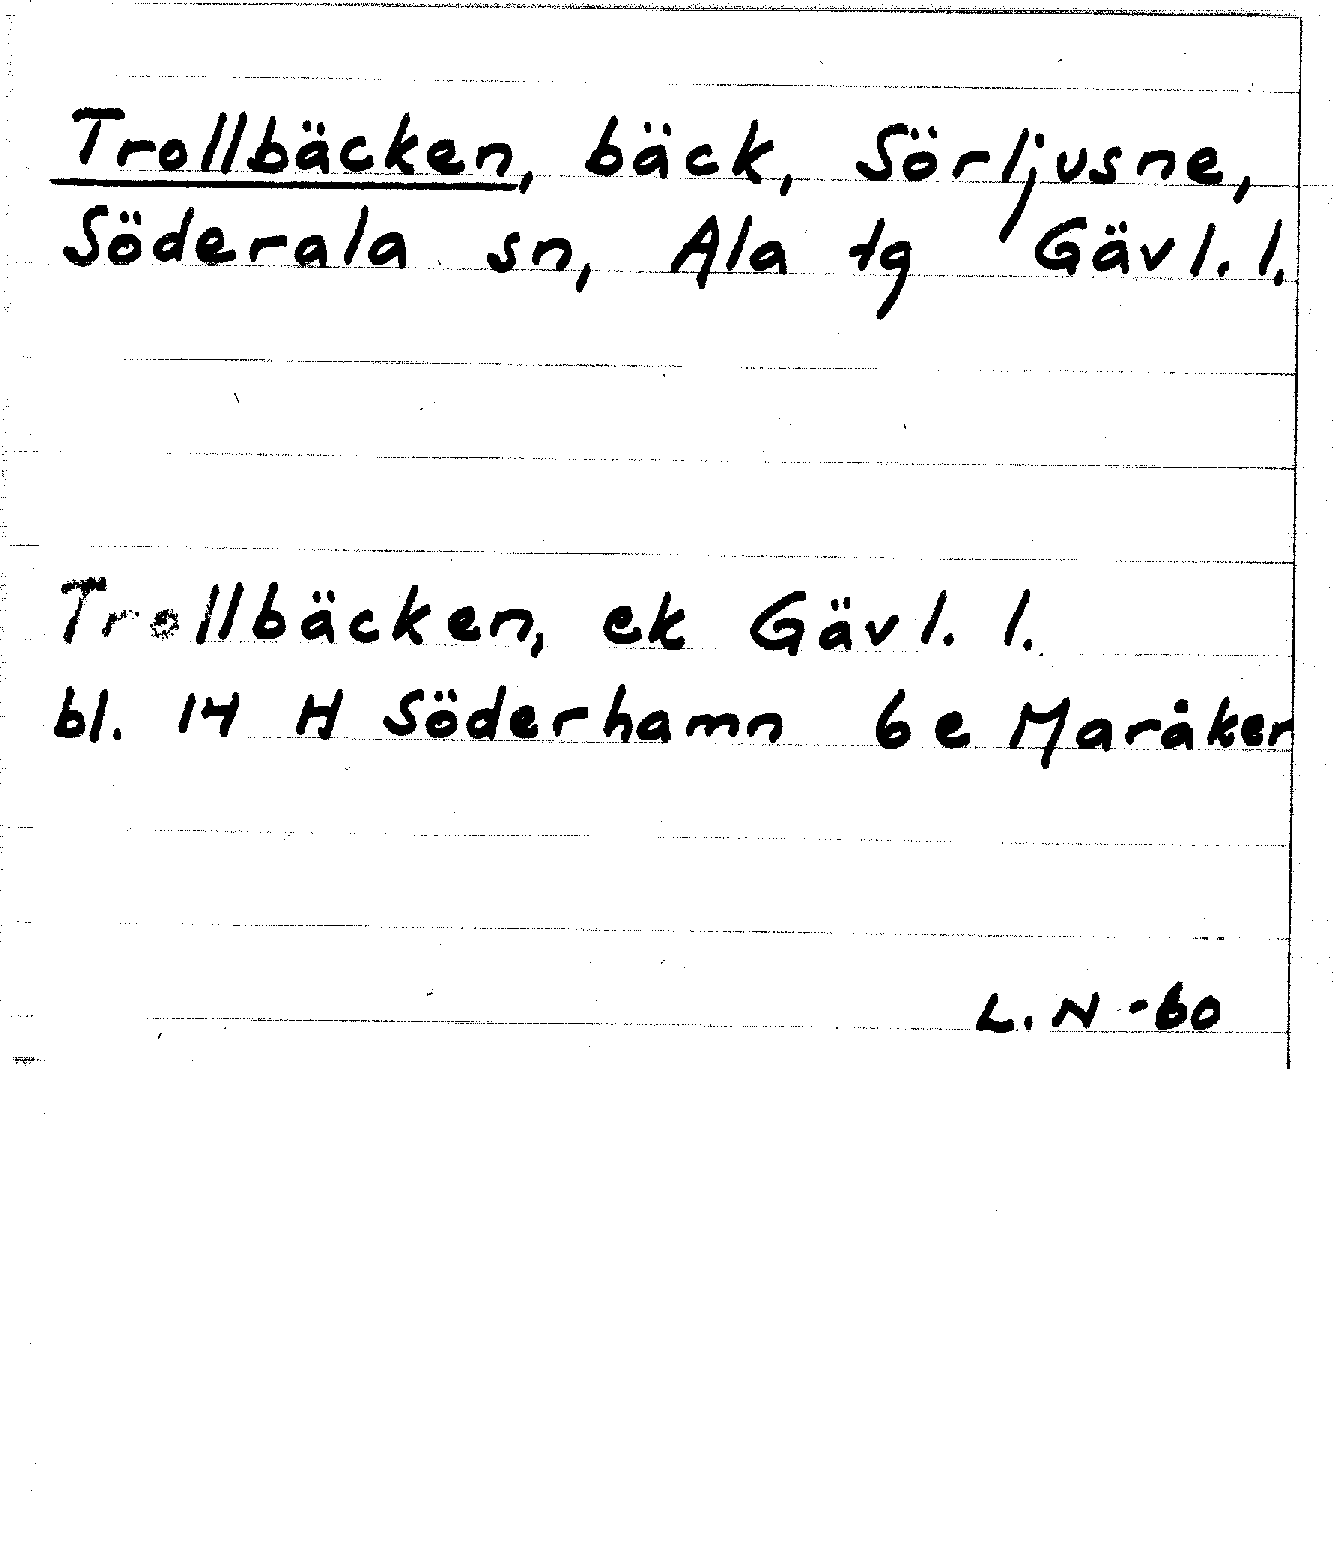 Trollbäcken, bäck, Sörljusne,
Söderala sn, Ala tg Gävl. l.
Trollbäcken, ek Gävl. l.
bl. 14 H Söderhamn 6e Maråker
L. N -60